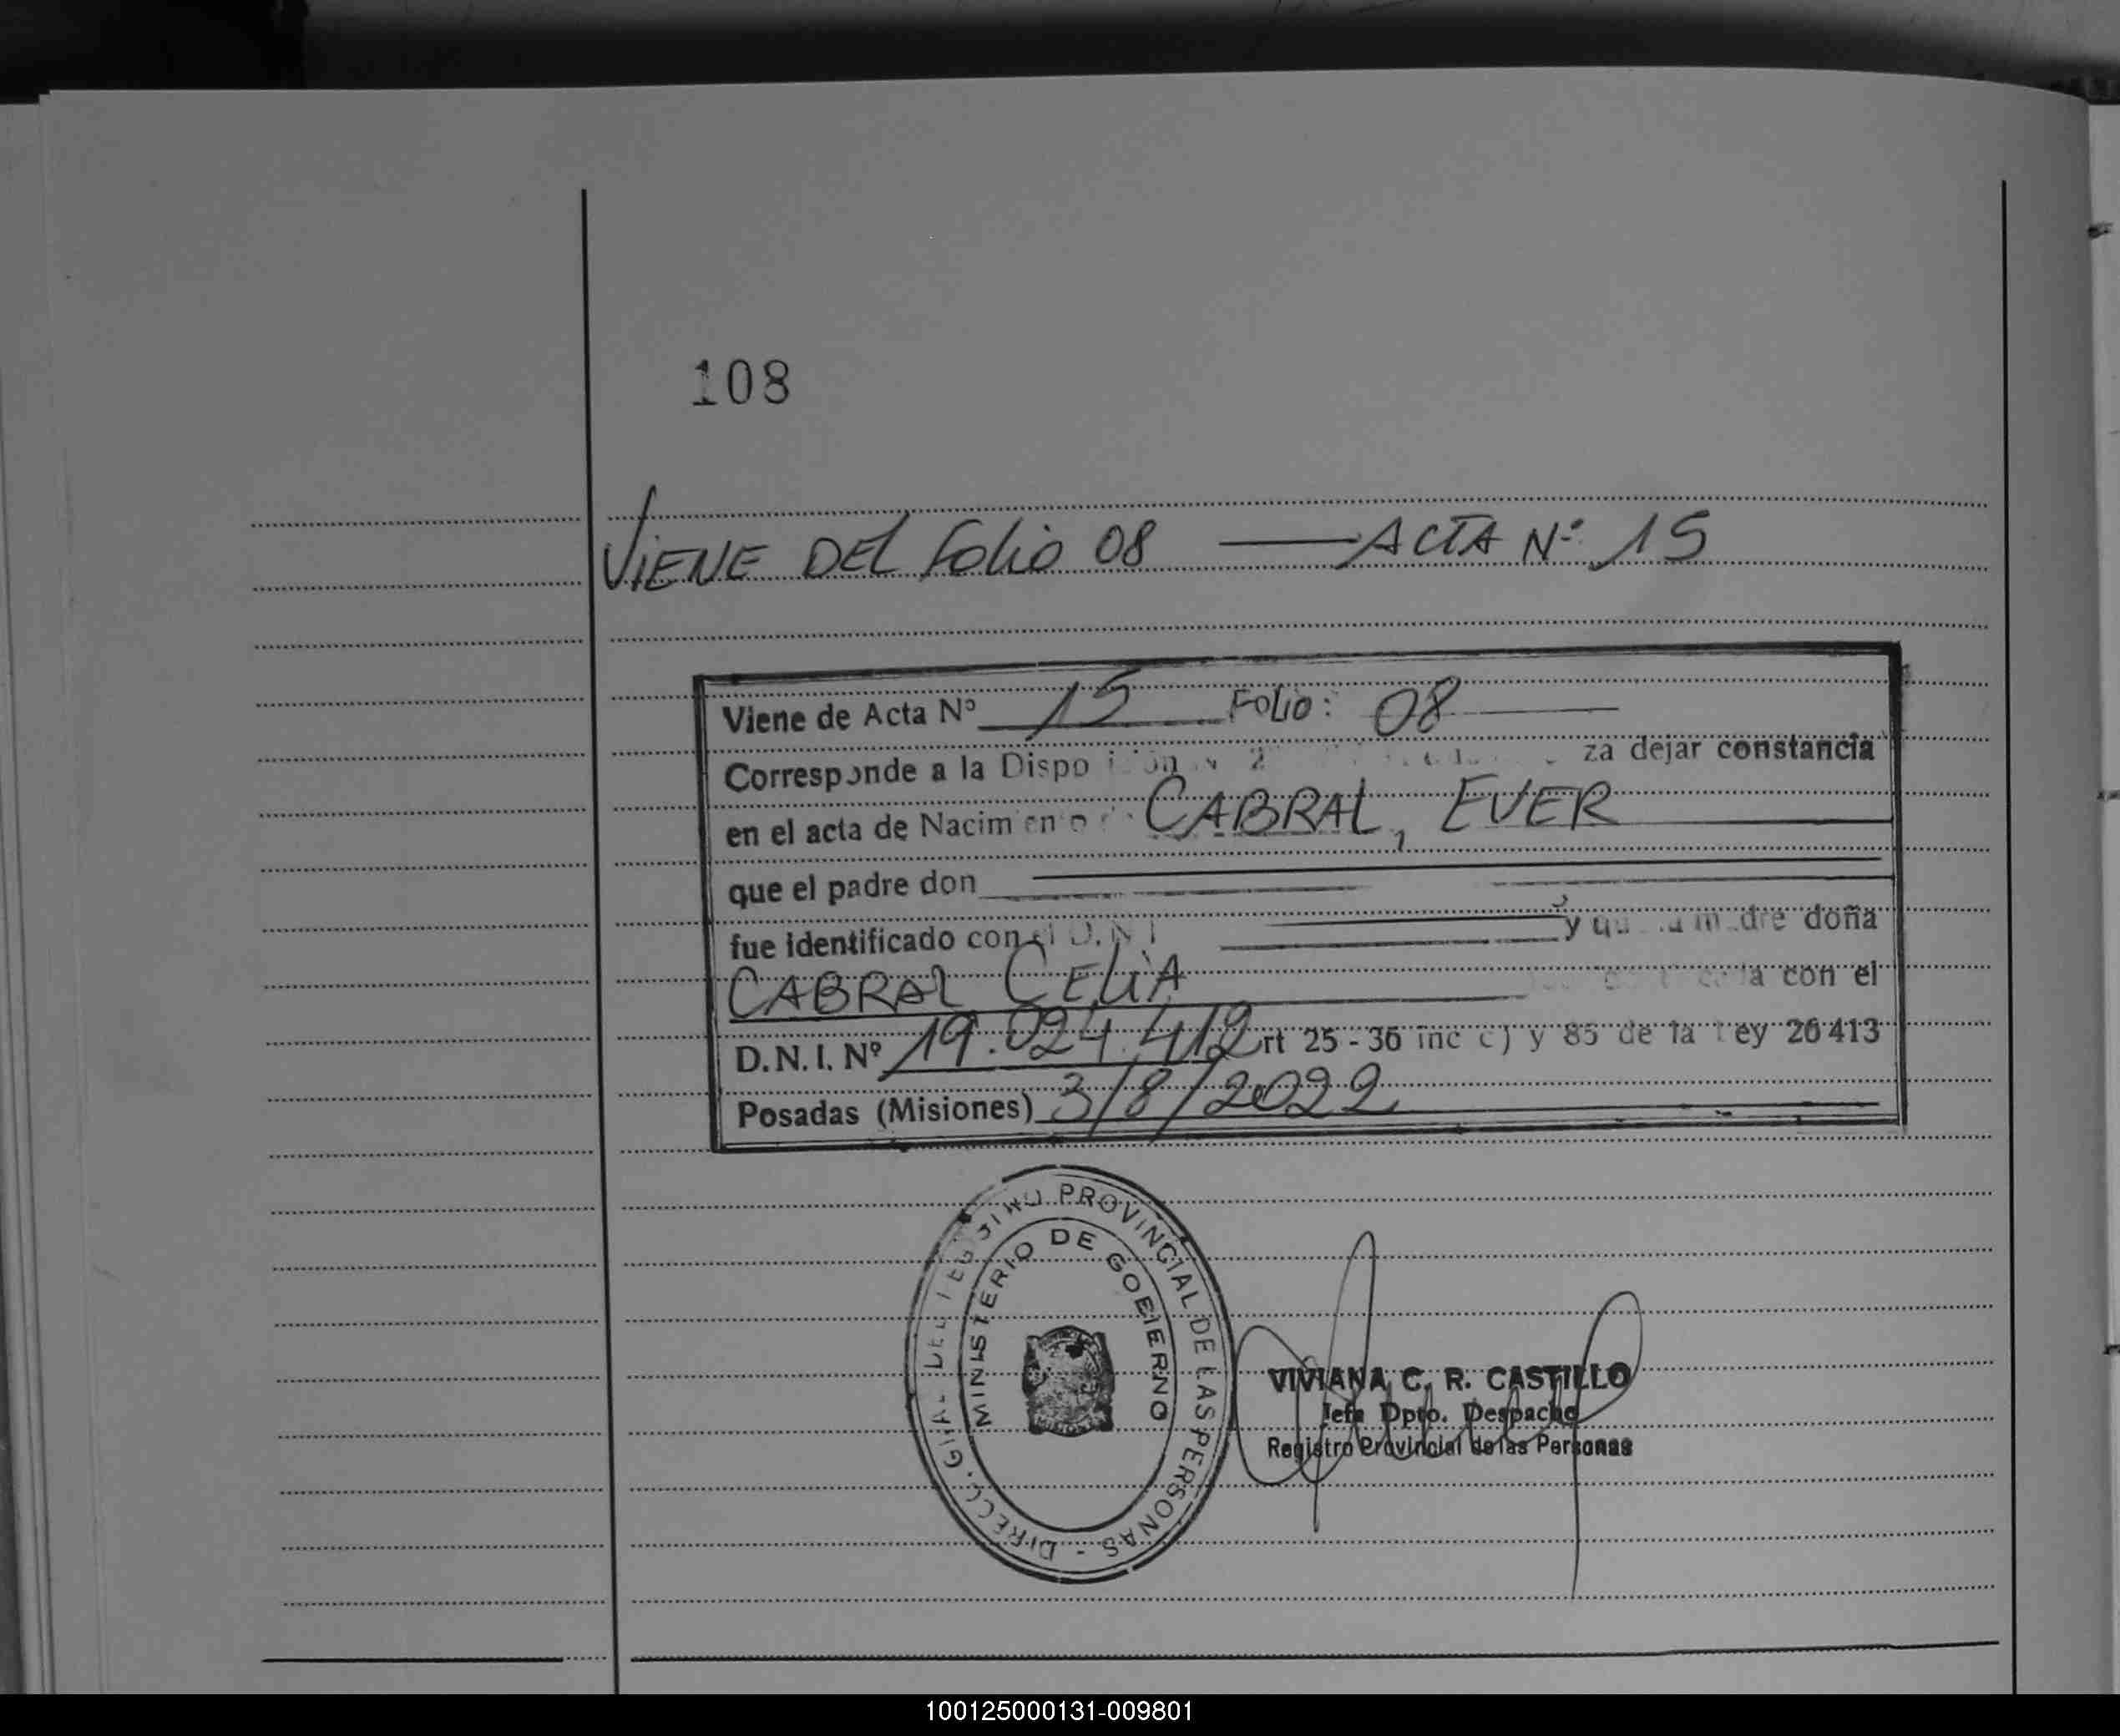 108
VIENE DEL Folio 08 — ACTA Nº 15
Viene de Acta Nº 15 Folio: 08
Corresponde a la za dejar constancia
en el acta de CABRAL, EVER
que el padre don
fue identificado con el D.N.I y doña
CABRAL CELIA con el
D.N.I. Nº 19.024.412 rt 25 - 36 inc c) y 85 de la Ley 26413
Posadas (Misiones) 3/8/2022
PROVINCIAL DE LAS PERSONAS -
MINISTERIO DE GOBIERNO
VIVIANA C. R. CASTILLO
Jefa Dpto. Despacho
Registro Provincial de las Personas
100125000131-009801